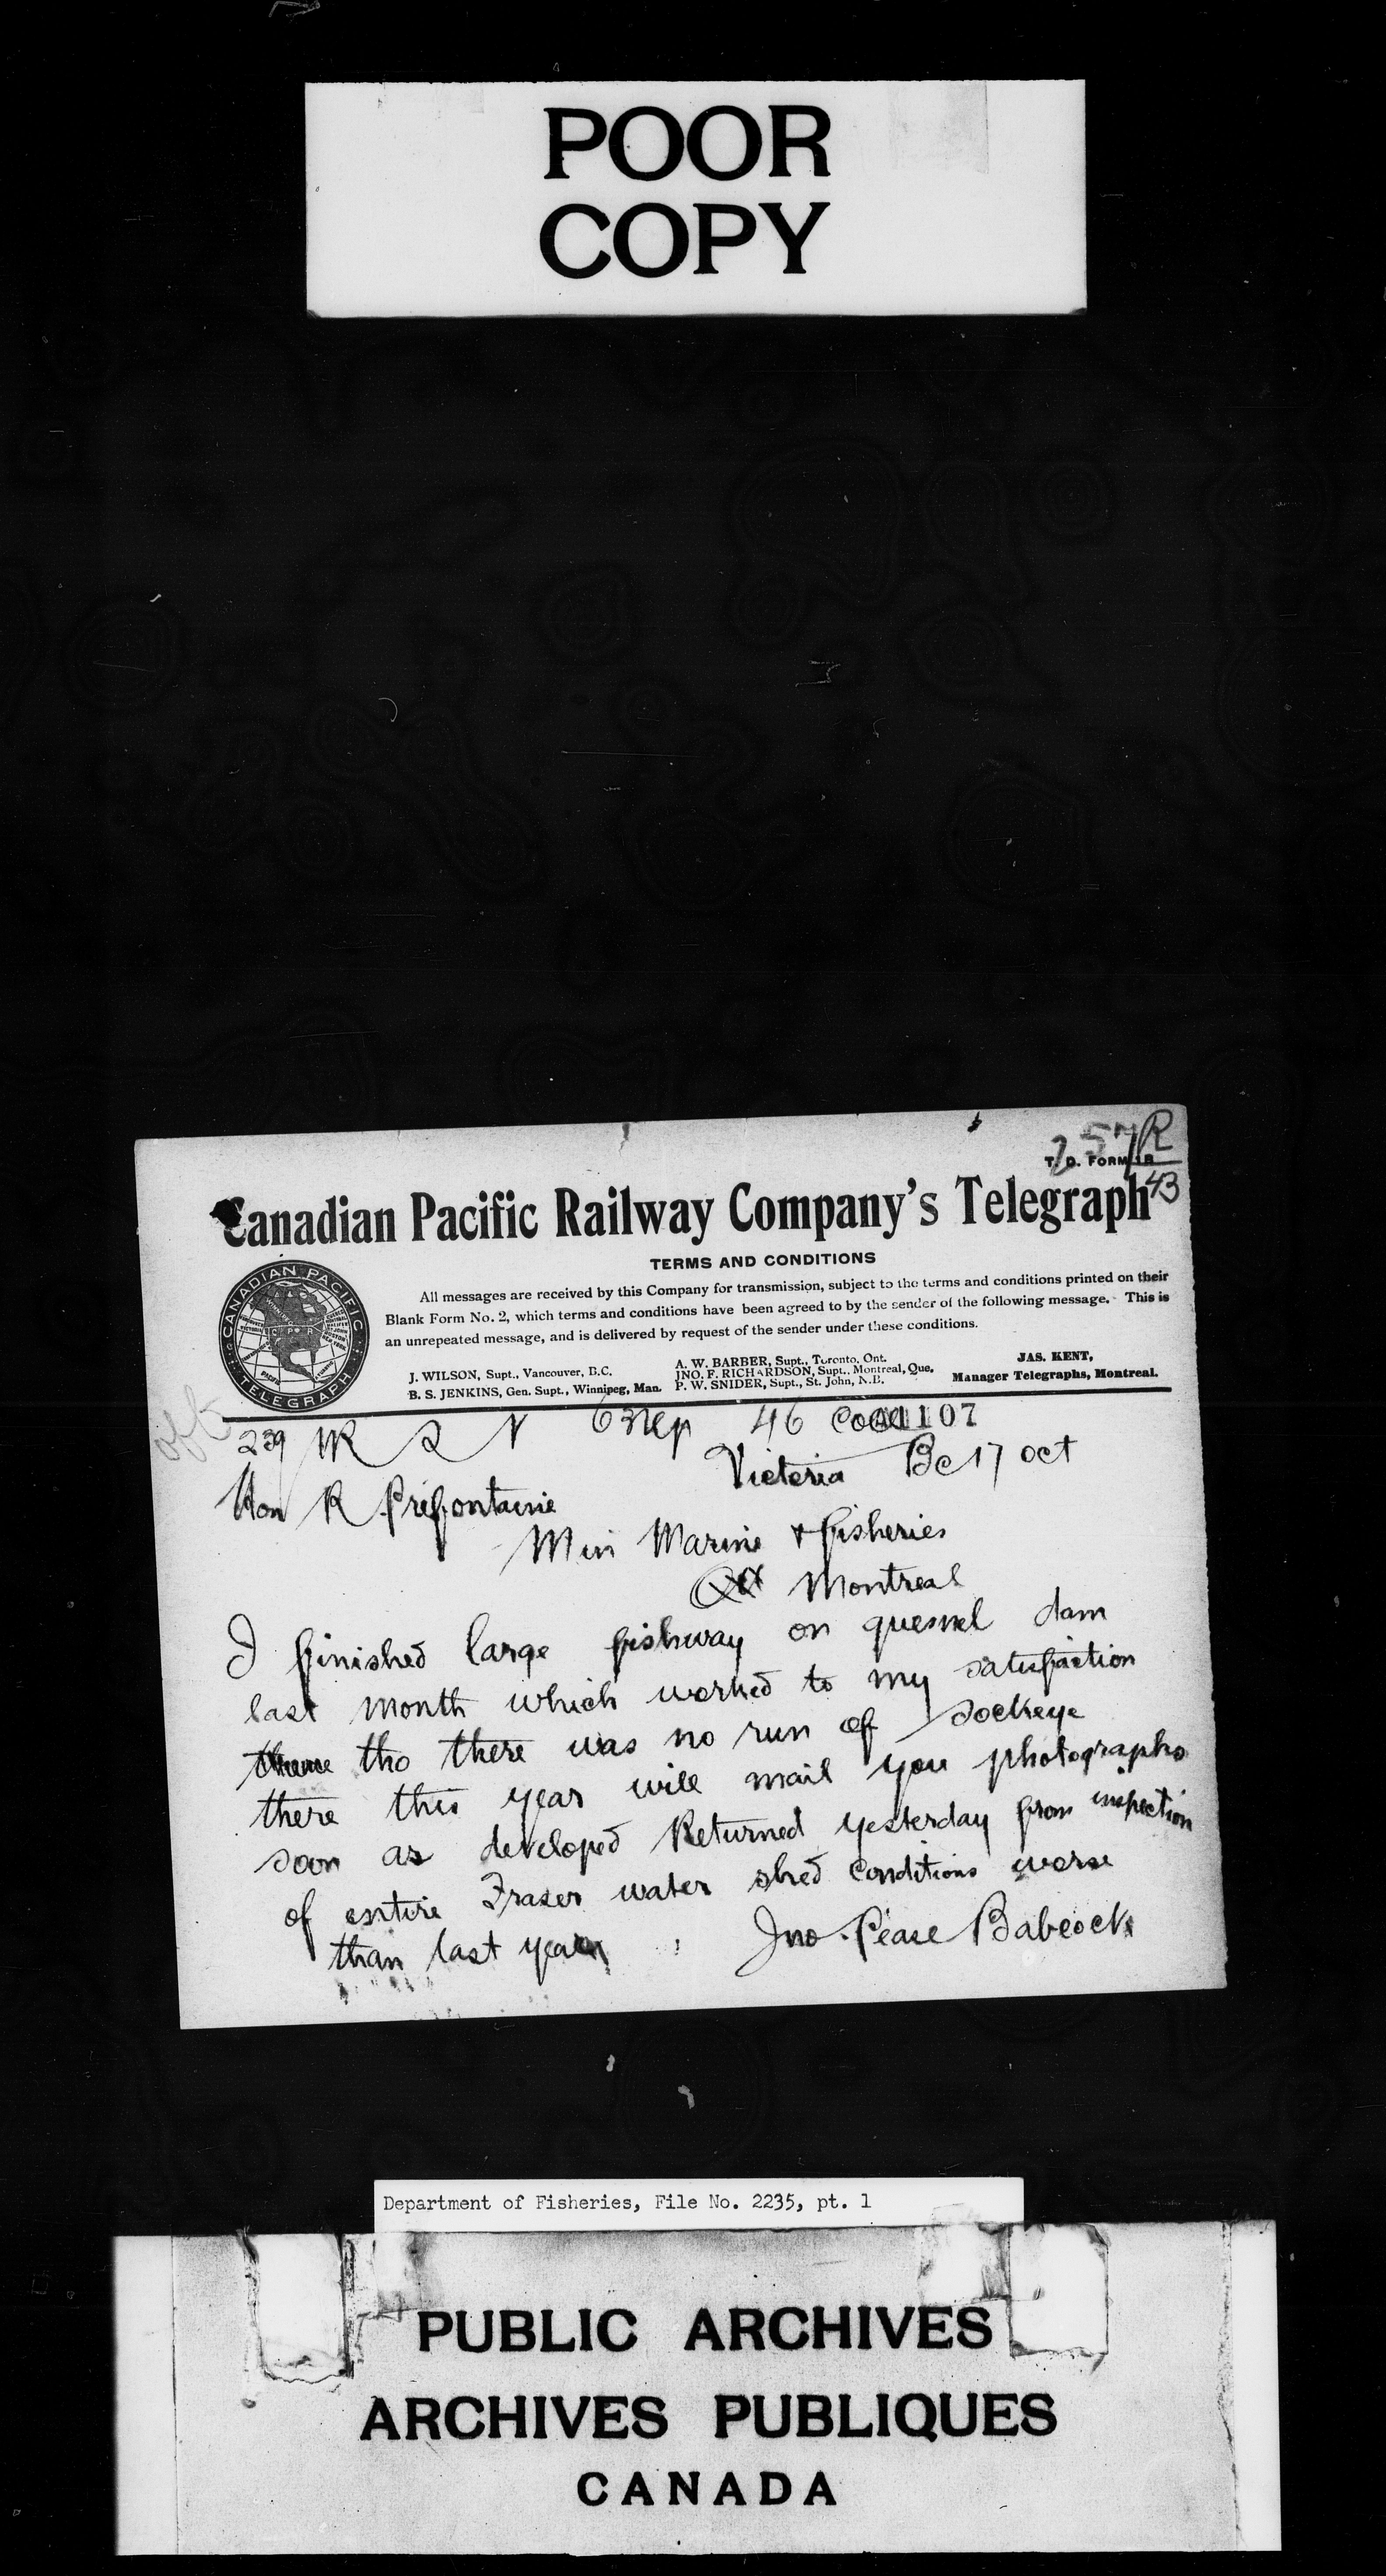 POOR
COPY
257R
T. D. FORM 1 B
43
Canadian Pacific Railway Company's Telegraph
TERMS AND CONDITIONS
All messages are received by this Company for transmission, subject to the terms and conditions printed on their
Blank Form No. 2, which terms and conditions have been agreed to by the sender of the following message. This is
an unrepeated message, and is delivered by request of the sender under these conditions.
CANADIAN PACIFIC
C P R
TELEGRAPH
J. WILSON, Supt., Vancouver, B.C.
B. S. JENKINS, Gen. Supt., Winnipeg, Man.
A. W. BARBER, Supt., Toronto, Ont.
JNO. F. RICHARDSON, Supt., Montreal, Que.
P. W. SNIDER, Supt., St. John, N.B.
JAS. KENT,
Manager Telegraphs, Montreal.
239 46 107
Victoria Bc 17 oct
Hon R Prefontaine
Min Marine & fisheries
Montreal
I finished large fishway on quesnel dam
last month which worked to my satisfaction
tho there was no run of sockeye
there this year will mail you photographs
soon as developed Returned yesterday from inspection
of entire Frazer water shed conditions worse
than last year
Jno. Pease Babcock
Department of Fisheries, File No. 2235, pt. 1
PUBLIC ARCHIVES
ARCHIVES PUBLIQUES
CANADA